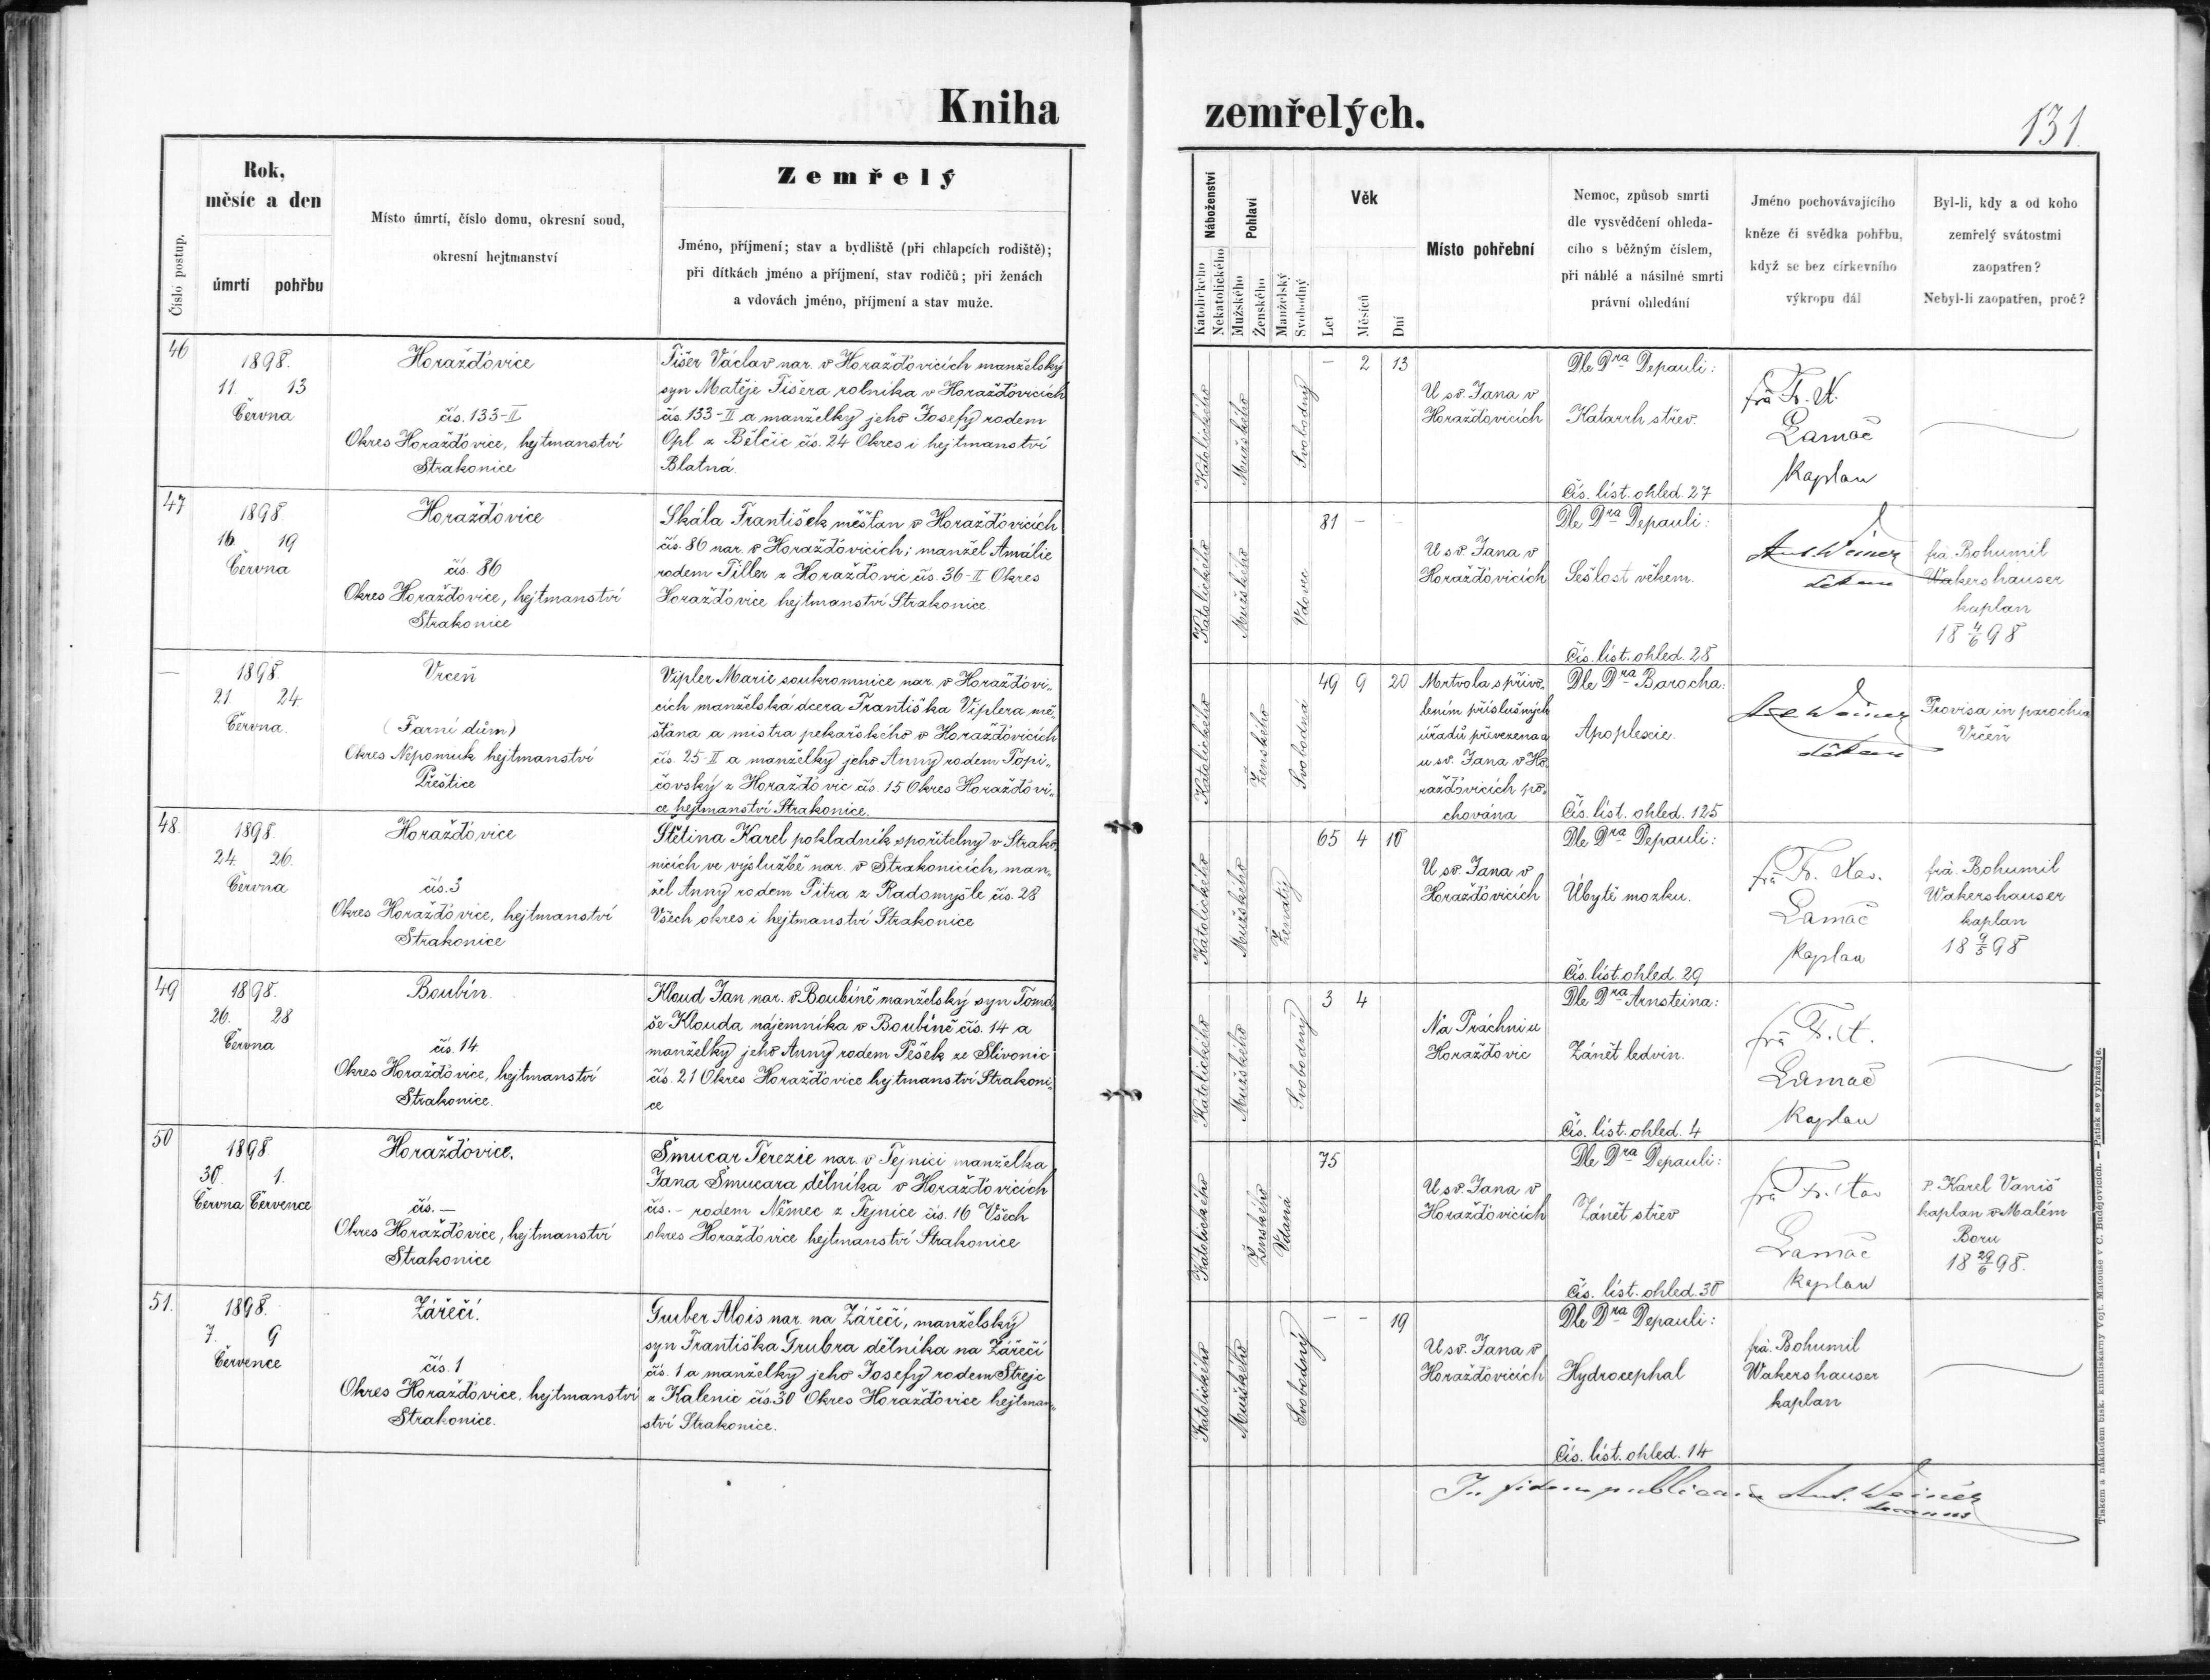 Kniha
zemřelých.
131
Číslo postup.
Rok,
měsíc a den
úmrtí pohřbu
Místo úmrtí, číslo domu, okresní soud,
okresní hejtmanství
Zemřelý
Jméno, příjmení; stav a bydliště (při chlapcích rodiště);
při dítkách jméno a příjmení, stav rodičů; při ženách
a vdovách jméno, příjmení a stav muže.
Náboženství
Katolického
Nekatolického
Pohlaví
Mužského
Ženského
Manželský
Svobodný
Věk
Let
Měsíců
Dní
Místo pohřební
Nemoc, způsob smrti
dle vysvědčení ohleda-
cího s běžným číslem,
při náhlé a násilné smrti
právní ohledání
Jméno pochovávajícího
kněze či svědka pohřbu,
když se bez církevního
výkropu dál
Byl-li, kdy a od koho
zemřelý svátostmi
zaopatřen?
Nebyl-li zaopatřen, proč?
46
1898.
11 13
Června
Horažďovice
čís. 133-II
Okres Horažďovice, hejtmanství
Strakonice
Fišer Václav nar. v Horažďovicích manželský
syn Matěje Fišera rolníka v Horažďovicích
čís. 133-II a manželky jeho Josefy rodem
Opl z Bělčic čís. 24 Okres i hejtmanství
Blatná.
Katolického
Mužského
Svobodný
- 2 13
U sv. Jana v
Horažďovicích
Dle Dra Depauli:
Katarrh střev.
Čís. líst. ohled. 27
frà Fr. X.
Lamač
Kaplan
47
1898.
16 19
Června
Horažďovice
čís. 86
Okres Horažďovice, hejtmanství
Strakonice
Skála František měšťan v Horažďovicích
čís. 86 nar. v Horažďovicích; manžel Amálie
rodem Tiller z Horažďovic čís. 36-II Okres
Horažďovice hejtmanství Strakonice
Katolického
Mužského
Vdovec
81 - -
U sv. Jana v
Horažďovicích
Dle Dra Depauli:
Sešlost věkem.
Čís. líst. ohled. 28
Ant Weiner
děkan
frà. Bohumil
Wakershauser
kaplan
18 4/6 98
—
1898.
21 24.
Června.
Vrčeň
(Farní dům)
Okres Nepomuk hejtmanství
Přeštice
Vipler Marie soukromnice nar. v Horažďovi-
cích manželská dcera Františka Viplera mě-
šťana a mistra pekařského v Horažďovicích
čís. 25-II a manželky jeho Anny rodem Topi-
čovský z Horažďovic čís. 15 Okres Horažďovi-
ce hejtmanství Strakonice.
Katolického
Ženského
Svobodná
49 9 20
Mrtvola s přivo-
lením příslušných
úřadů převezena a
u sv. Jana v Ho-
ražďovicích po-
chována
Dle Dra Barocha:
Apoplexie.
Čís. líst. ohled. 125
Ant Weiner
děkan
Provisa in parochia
Vrčeň
48.
1898.
24. 26.
Června
Horažďovice
čís. 3
Okres Horažďovice, hejtmanství
Strakonice
Štětina Karel pokladník spořitelny v Strako-
nicích ve výslužbě nar. v Strakonicích, man-
žel Anny rodem Pitra z Radomyšle čís. 28
Všech okres i hejtmanství Strakonice
Katolického
Mužského
Ženatý
65 4 10
U sv. Jana v
Horažďovicích
Dle Dra Depauli:
Úbytě mozku.
Čís. líst. ohled. 29
frà Fr. Xav.
Lamač
Kaplan
frà. Bohumil
Wakershauser
kaplan
18 9/5 98
49
1898.
26. 28
Června
Boubín.
čís. 14
Okres Horažďovice, hejtmanství
Strakonice.
Kloud Jan nar. v Boubíně manželský syn Tomá-
še Klouda nájemníka v Boubíně čís. 14 a
manželky jeho Anny rodem Pešek ze Slivonic
čís. 21 Okres Horažďovice hejtmanství Strakoni-
ce
Katolického
Mužského
Svobodný
3 4
Na Práchni u
Horažďovic
Dle Dra Arnsteina:
Zánět ledvin.
Čís. líst. ohled. 4
frà Fr. X.
Lamač
Kaplan
50
1898.
30. 1.
Června Července
Horažďovice.
čís. —
Okres Horažďovice, hejtmanství
Strakonice
Šmucar Terezie nar. v Tejnici manželka
Jana Šmucara dělníka v Horažďovicích
čís. - rodem Němec z Tejnice čís. 16 Všech
okres Horažďovice hejtmanství Strakonice
Katolického
Ženského
Vdaná
75
U sv. Jana v
Horažďovicích
Dle Dra Depauli:
Zánět střev
Čís. líst. ohled. 30
frà Fr. Xav
Lamač
Kaplan
P. Karel Vaniš
kaplan v Malém
Boru
18 29/6 98.
51.
1898.
7. 9
Července
Zářečí.
čís. 1
Okres Horažďovice, hejtmanství
Strakonice.
Gruber Alois nar. na Zářečí, manželský
syn Františka Grubra dělníka na Zářečí
čís. 1 a manželky jeho Josefy rodem Strejc
z Kalenic čís. 30 Okres Horažďovice hejtman-
ství Strakonice.
Katolického
Mužského
Svobodný
- - 19
U sv. Jana v
Horažďovicích
Dle Dra Depauli:
Hydrocephal
Čís. líst. ohled. 14
frà. Bohumil
Wakershauser
kaplan
In fidem publicam Ant. Weiner
decanus
Tiskem a nákladem bisk. knihtiskárny Vojt. Matouše v Č. Budějovicích. — Patisk se vyhražuje.